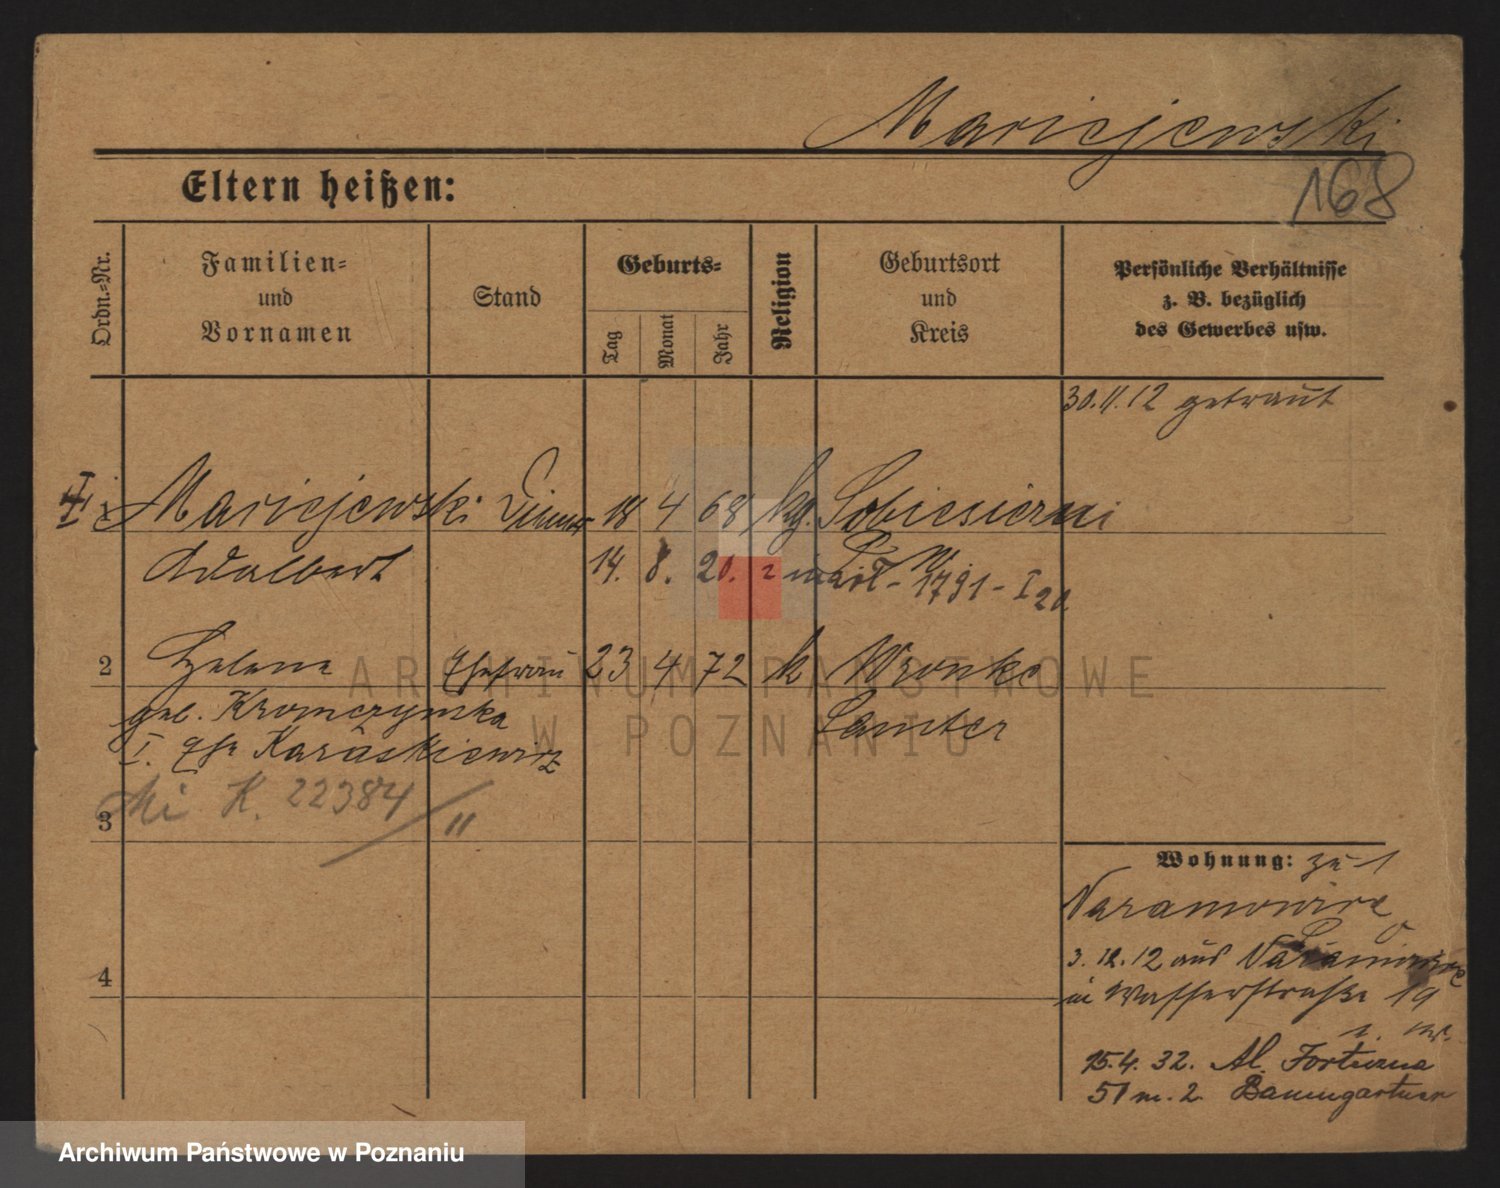 Maricjewski
168
Eltern heißen:
Ordn.-Nr.
Familien-
und
Vornamen
Stand
Geburts-
Tag
Monat
Jahr
Religion
Geburtsort
und
Kreis
Persönliche Verhältnisse
z. B. bezüglich
des Gewerbes usw.
30.11.12 getraut
1 Maricjewski 18 4 68 kg. Sobiesierni
Adalbert 14. 8. 20. 1791 - I 20
2 Helene Ehefrau 23 4 72 k Wronke
geb. Kromczynska Samter
I. Ehe Karaskiewicz
K. 22384/11
3
Wohnung: zu 1
Naramowice
3.12.12 aus Naramowice
in Wasserstraße 19
4
15.4.32. Al. Fortuna
51 m. 2 Baumgartner
ARCHIWUM PAŃSTWOWE
W POZNANIU
Archiwum Państwowe w Poznaniu